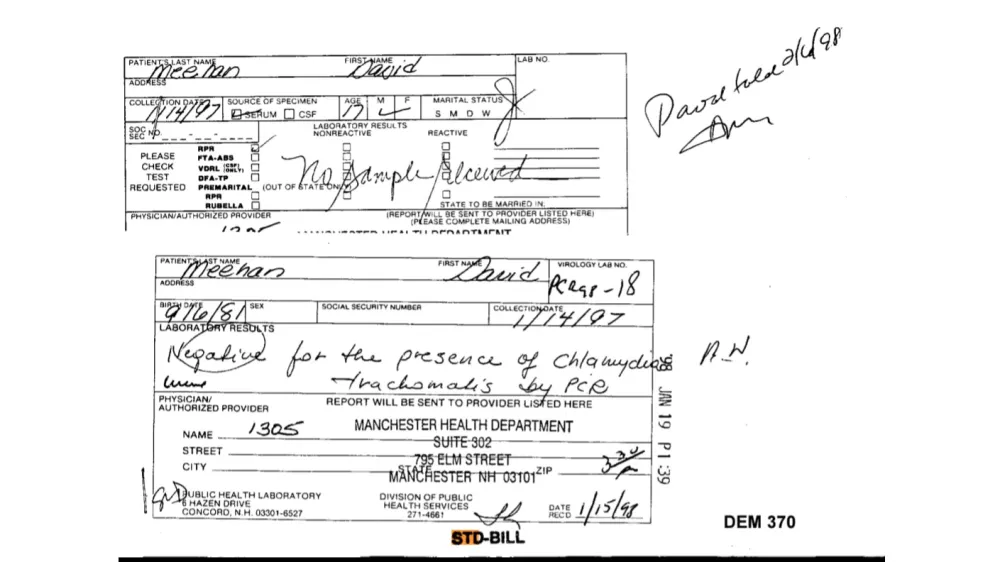 David told 2/6/98
PATIENT'S LAST NAME FIRST NAME LAB NO.
Meehan David
ADDRESS
COLLECTION DATE SOURCE OF SPECIMEN AGE M F MARITAL STATUS
1/14/97 SERUM CSF 17 S M D W
SOC SEC NO. LABORATORY RESULTS
NONREACTIVE REACTIVE
RPR
PLEASE FTA-ABS
CHECK VDRL (CSF ONLY)
TEST DFA-TP
No Sample received
REQUESTED PREMARITAL (OUT OF STATE ONLY)
RPR
RUBELLA STATE TO BE MARRIED IN.
PHYSICIAN/AUTHORIZED PROVIDER (REPORT WILL BE SENT TO PROVIDER LISTED HERE)
(PLEASE COMPLETE MAILING ADDRESS)
1305
MANCHESTER HEALTH DEPARTMENT
PATIENT'S LAST NAME FIRST NAME VIROLOGY LAB NO.
Meehan David
PCR98-18
ADDRESS
BIRTH DATE SEX SOCIAL SECURITY NUMBER COLLECTION DATE
9/6/81 1/14/97
LABORATORY RESULTS
Negative for the presence of Chlamydia
trachomatis by PCR
urine
R.W.
98 JAN 19 P1:39
PHYSICIAN/
AUTHORIZED PROVIDER REPORT WILL BE SENT TO PROVIDER LISTED HERE
NAME 1305 MANCHESTER HEALTH DEPARTMENT
SUITE 302
STREET 795 ELM STREET
CITY STATE ZIP
MANCHESTER NH 03101
PUBLIC HEALTH LABORATORY DIVISION OF PUBLIC
6 HAZEN DRIVE HEALTH SERVICES DATE
CONCORD, N.H. 03301-6527 271-4661 REC'D 1/15/98
STD-BILL
DEM 370